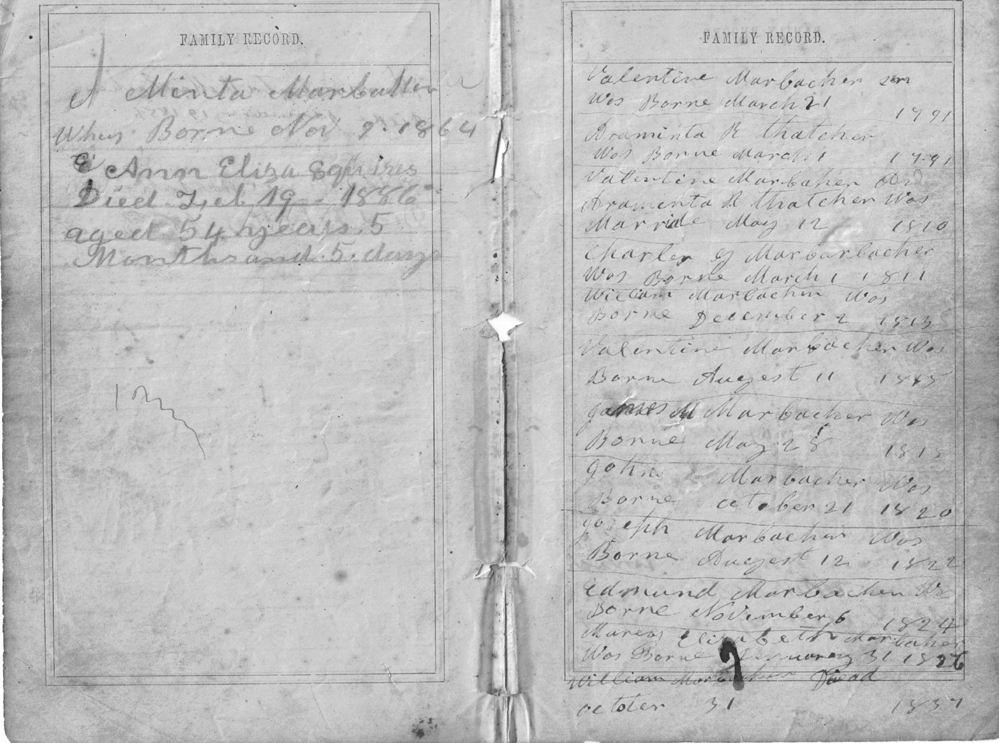 FAMILY RECORD.
A Minta Marbacher
Whas Borne Nov 9. 1864
Ann Eliza Squires
Died Feb 19 1886
aged 54 years 5
Months and 5. days
FAMILY RECORD.
Valentine Marbacher sen
Wos Borne March 21
1791
Araminta R thatcher
Wos Borne March 1 1791
Valentine Marbaher
Aramenta R thatcher Wos
Marride May 12 1810
Charles g Marbarbacher
Wos Borne March 1 1811
William Marbacher Wos
Borne December 2 1813
Valentine Marbacher Wos
Borne Augest 11
James M Marbacher Wos
Borne May 28
John Marbacher Wos
Borne october 21 1820
Joseph Marbacher Wos
Borne Augest 12 1822
Edmund Marbacher Wos
Borne November 6 1824
Elizabeth Marbaher
Wos Borne 31 1826
William Marbacher
october 31 1837